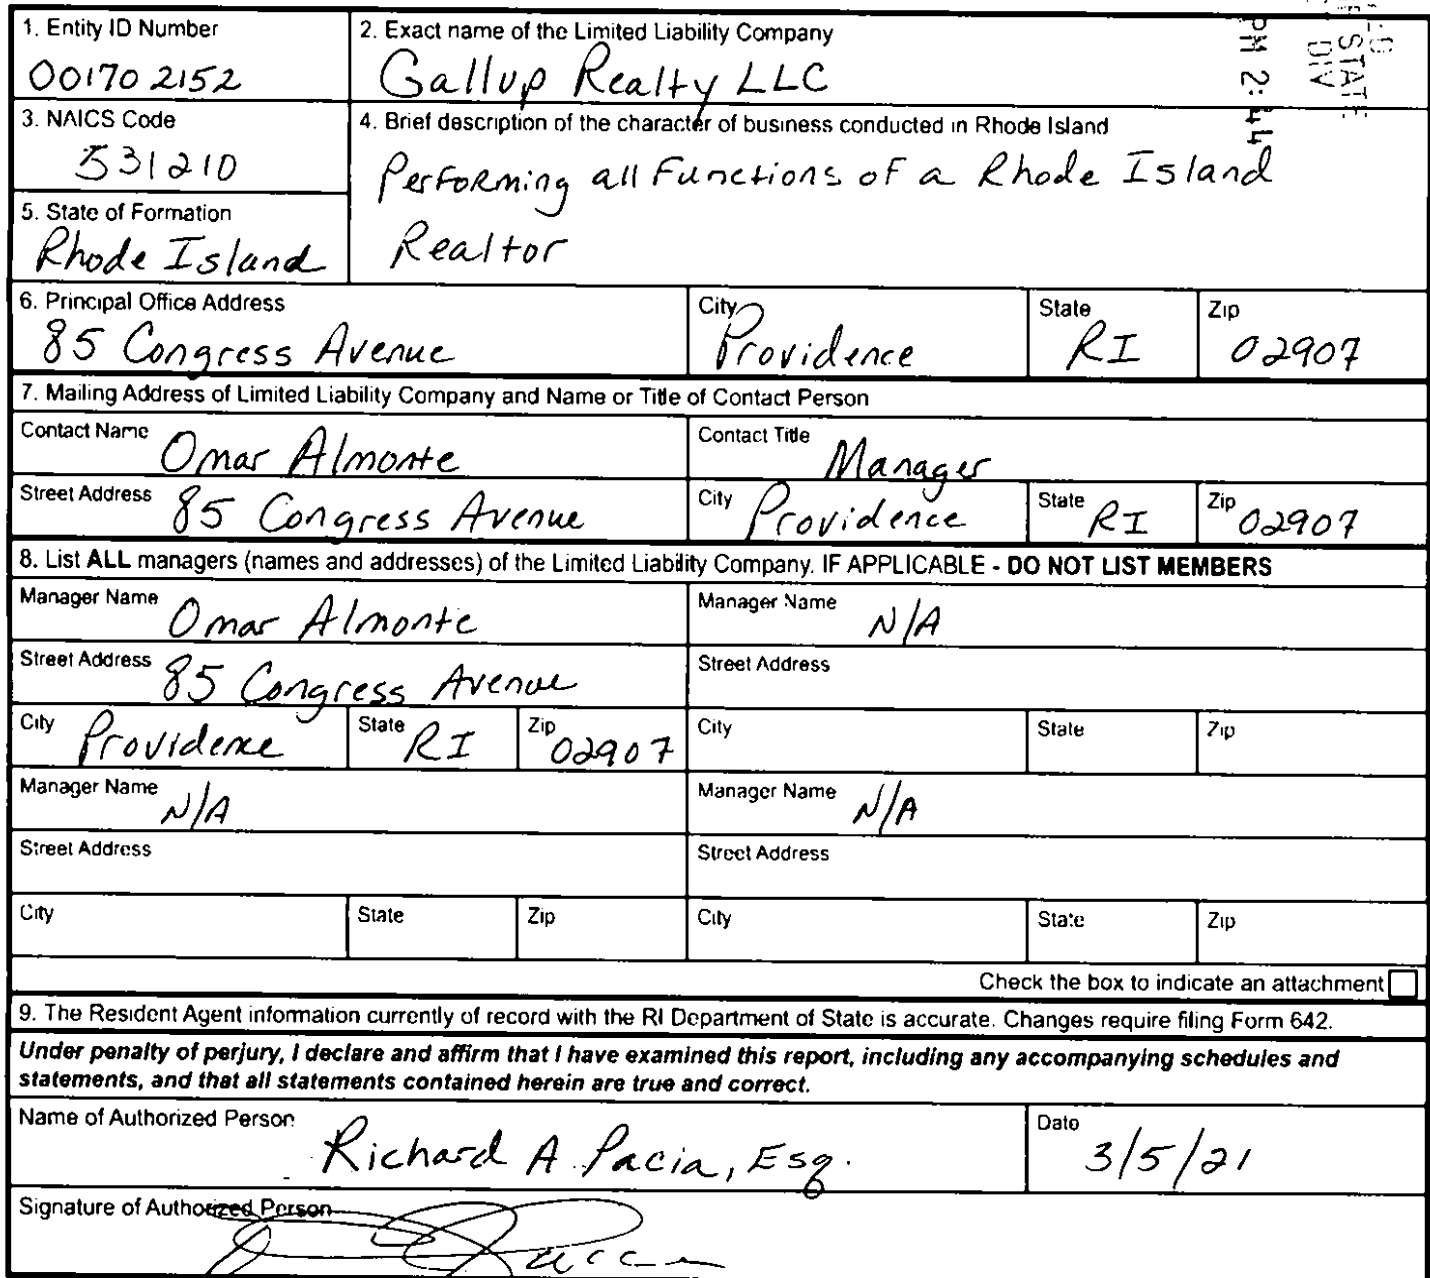 STATE
DIV
PM 2:44
1. Entity ID Number
001702152
2. Exact name of the Limited Liability Company
Gallup Realty LLC
3. NAICS Code
531210
4. Brief description of the character of business conducted in Rhode Island
Performing all Functions of a Rhode Island
Realtor
5. State of Formation
Rhode Island
6. Principal Office Address
85 Congress Avenue
City
Providence
State
RI
Zip
02907
7. Mailing Address of Limited Liability Company and Name or Title of Contact Person
Contact Name Omar Almonte
Contact Title Manager
Street Address 85 Congress Avenue
City Providence
State RI
Zip 02907
8. List ALL managers (names and addresses) of the Limited Liability Company. IF APPLICABLE - DO NOT LIST MEMBERS
Manager Name Omar Almonte
Manager Name N/A
Street Address 85 Congress Avenue
Street Address
City Providence
State RI
Zip 02907
City
State
Zip
Manager Name N/A
Manager Name N/A
Street Address
Street Address
City
State
Zip
City
State
Zip
Check the box to indicate an attachment
9. The Resident Agent information currently of record with the RI Department of State is accurate. Changes require filing Form 642.
Under penalty of perjury, I declare and affirm that I have examined this report, including any accompanying schedules and
statements, and that all statements contained herein are true and correct.
Name of Authorized Person
Richard A. Pacia, Esq.
Date
3/5/21
Signature of Authorized Person